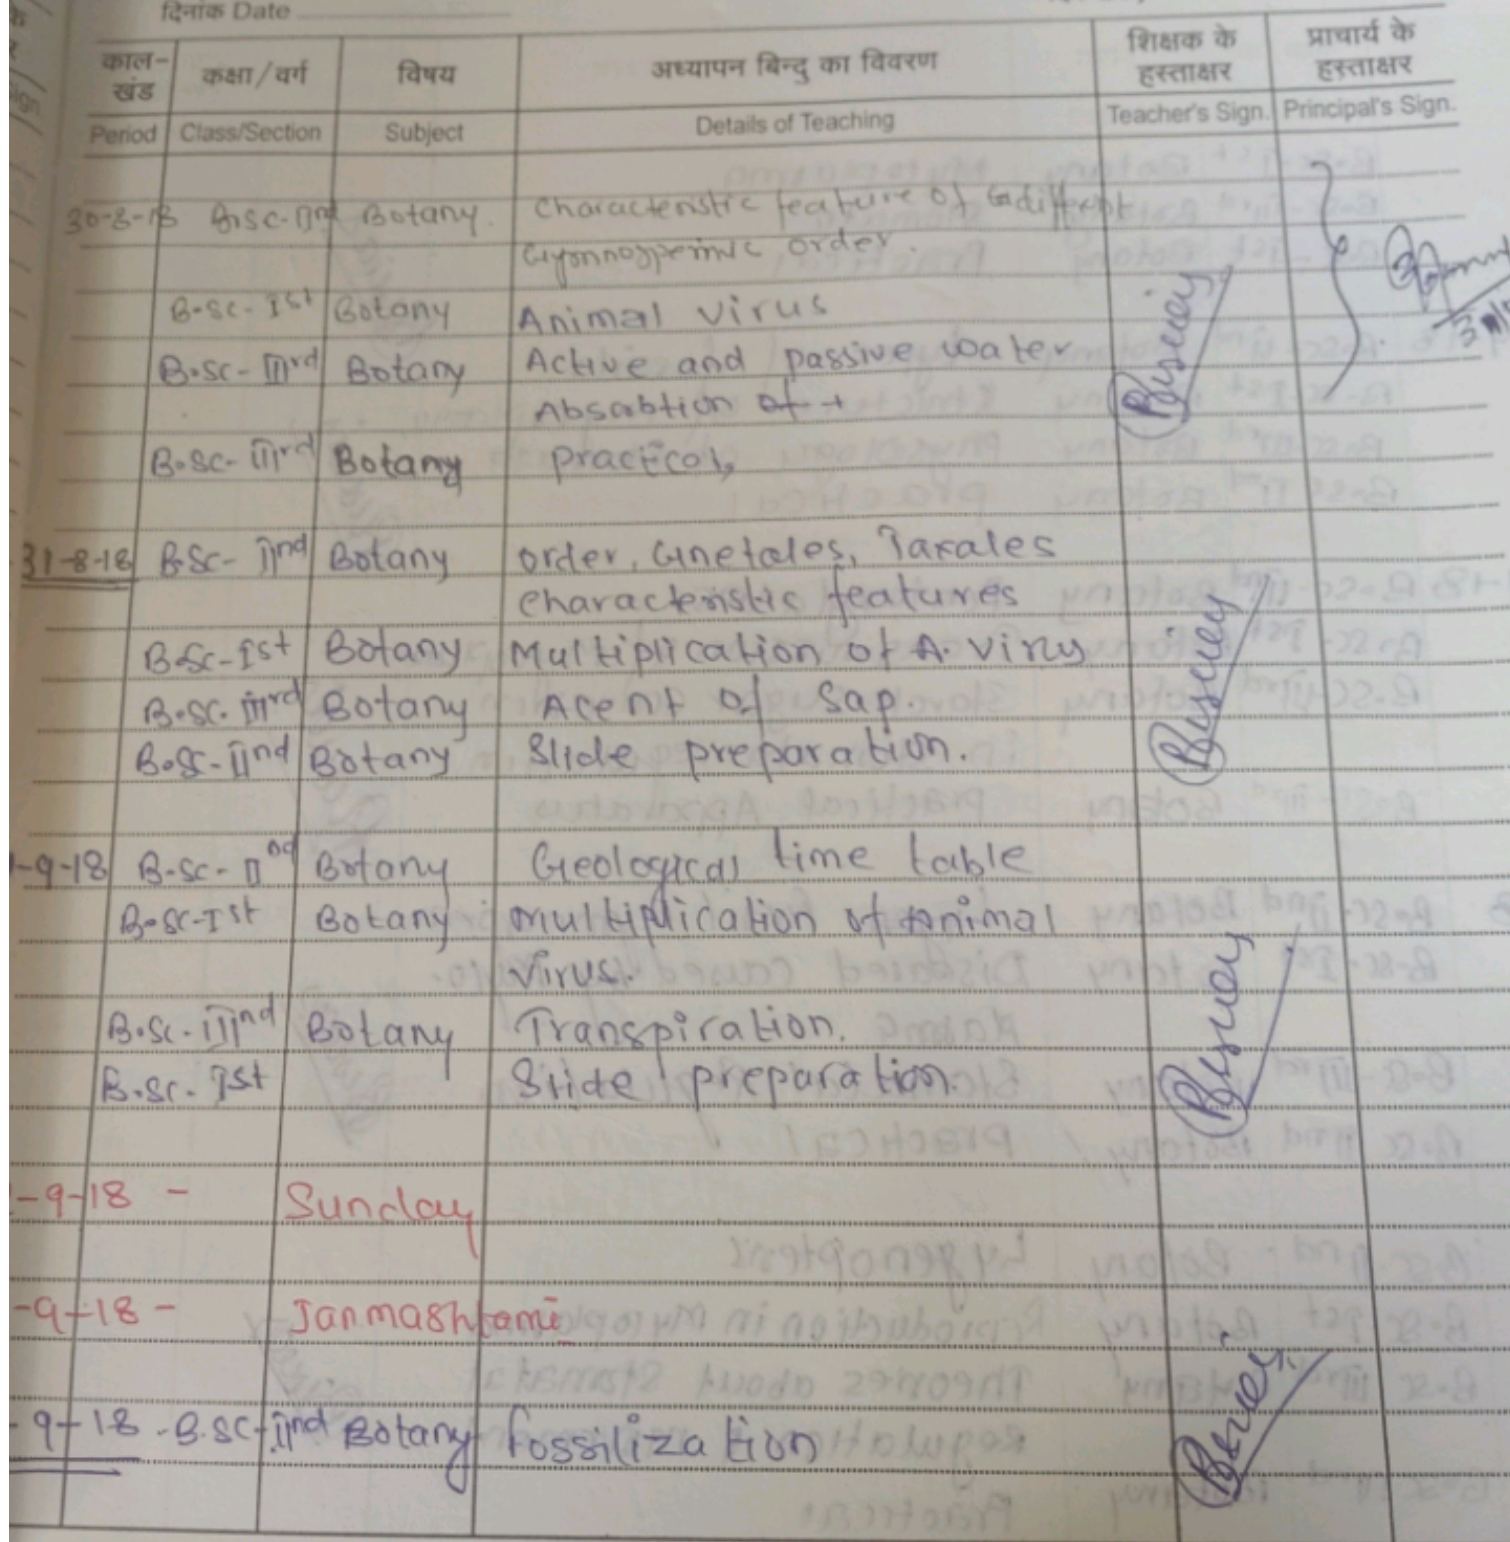 दिनांक Date
काल-खंड कक्षा/वर्ग विषय अध्यापन बिन्दु का विवरण शिक्षक के हस्ताक्षर प्राचार्य के हस्ताक्षर
Period Class/Section Subject Details of Teaching Teacher's Sign. Principal's Sign.
30-8-18 B.sc-IInd Botany. Characteristic feature of different
Gymnospermic order.
B.sc-Ist Botany Animal virus
B.sc-IIIrd Botany Active and passive water
Absabtion of
B.sc-IIIrd Botany practical,
31-8-18 B.Sc-IInd Botany order, Gnetales, Taxales
characteristic features
B.Sc-Ist Botany Multiplication of A. virus
B.sc. IIIrd Botany Acent of Sap.
B.Sc-IInd Botany Slide preparation.
-9-18 B.Sc-IInd Botany Geological time table
B.sc-Ist Botany multiplication of Animal
virus.
B.Sc-IIInd Botany Transpiration.
B.sc. Ist Slide preparation.
-9-18 - Sunday
-9-18 - Janmashtami
-9-18 - B.sc-IInd Botany fossilization